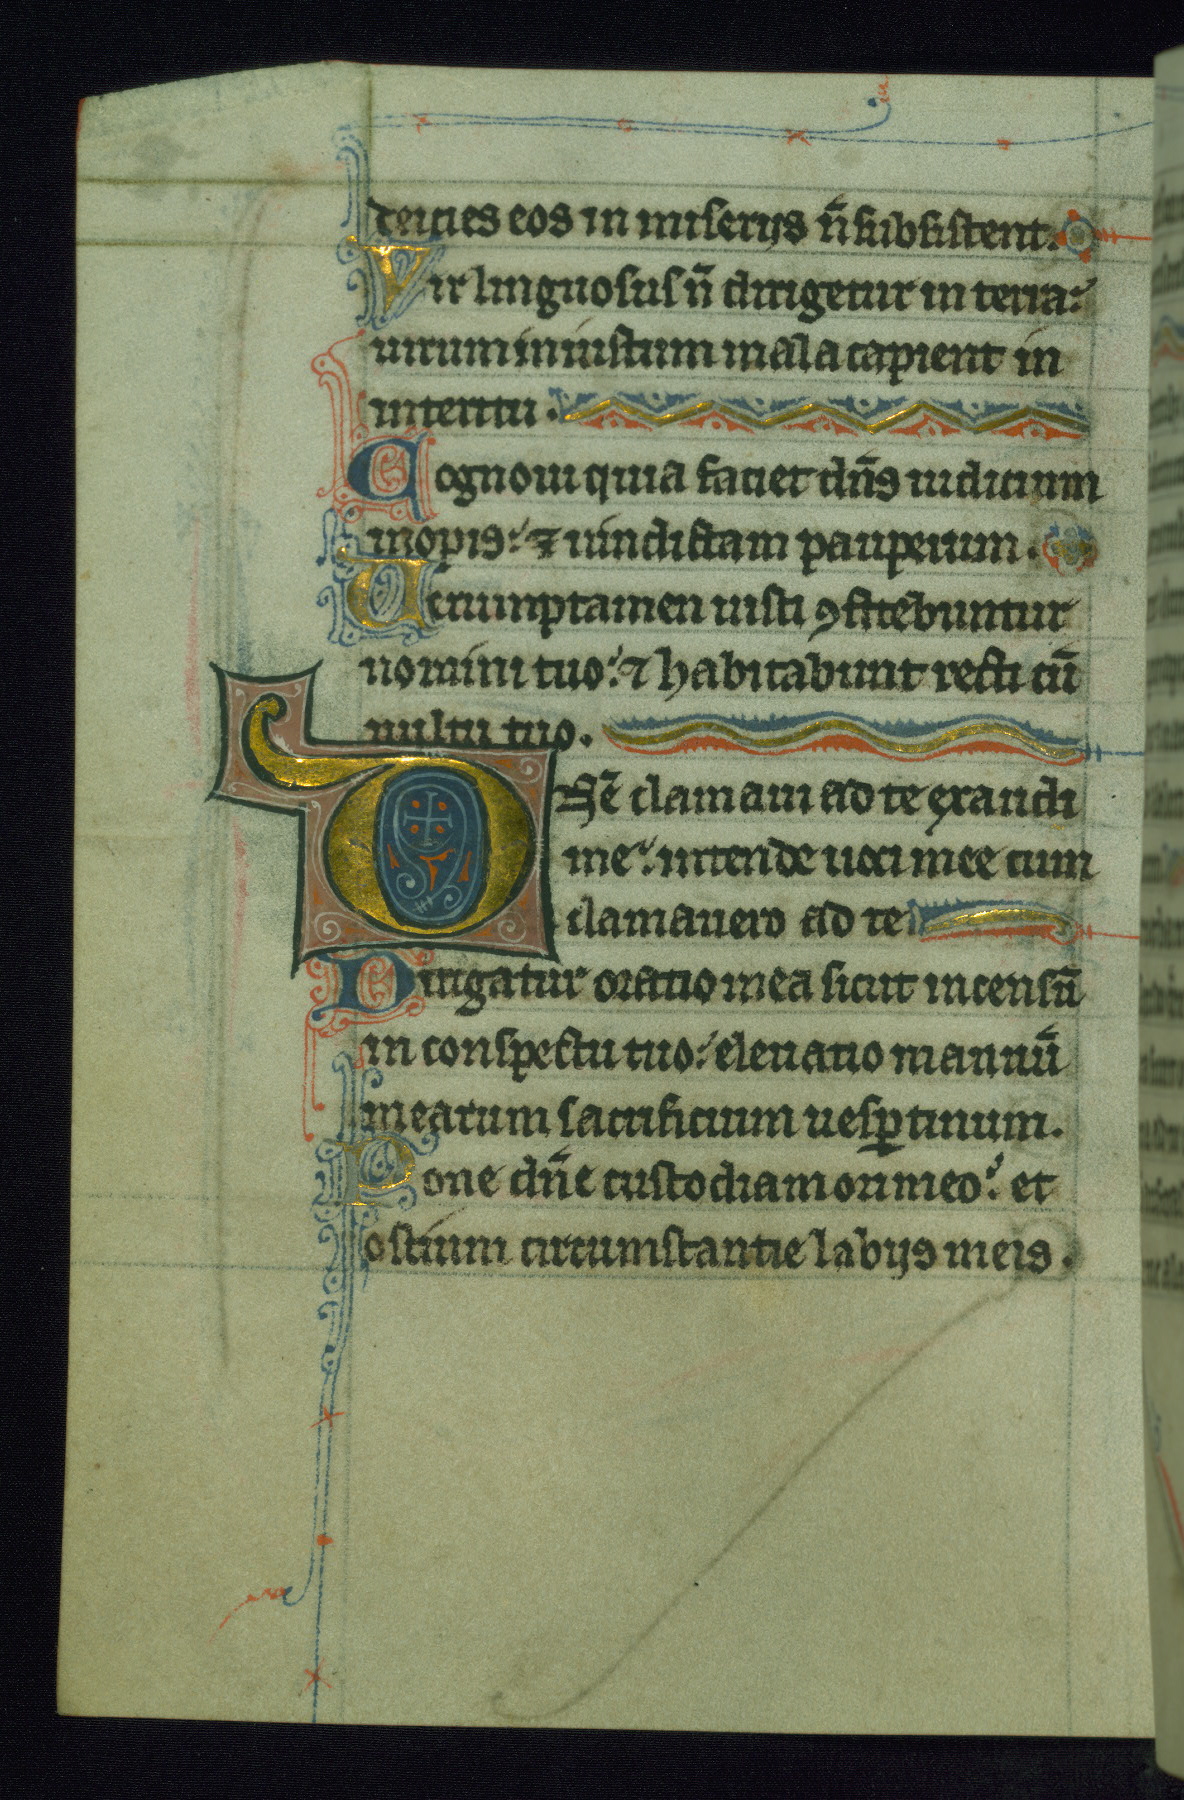 deicies eos in miserijs ñ subsistent.
Vir linguosus ñ dirigetur in terra:
uirum iniustum mala capient in
interitu.
Cognoui quia faciet dñs iudicium
inopis: ⁊ uindictam pauperum.
Uerumptamen iusti ꝯfitebuntur
nomini tuo: ⁊ habitabunt recti cū
uultu tuo.
Dñe clamaui ad te exaudi
me: intende uoci mee cum
clamauero ad te
Dirigatur oratio mea sicut incensū
in conspectu tuo: eleuatio manuū
mearum sacrificium uesꝑtinum.
Pone dñe custodiam ori meo: et
ostium circumstantie labijs meis.